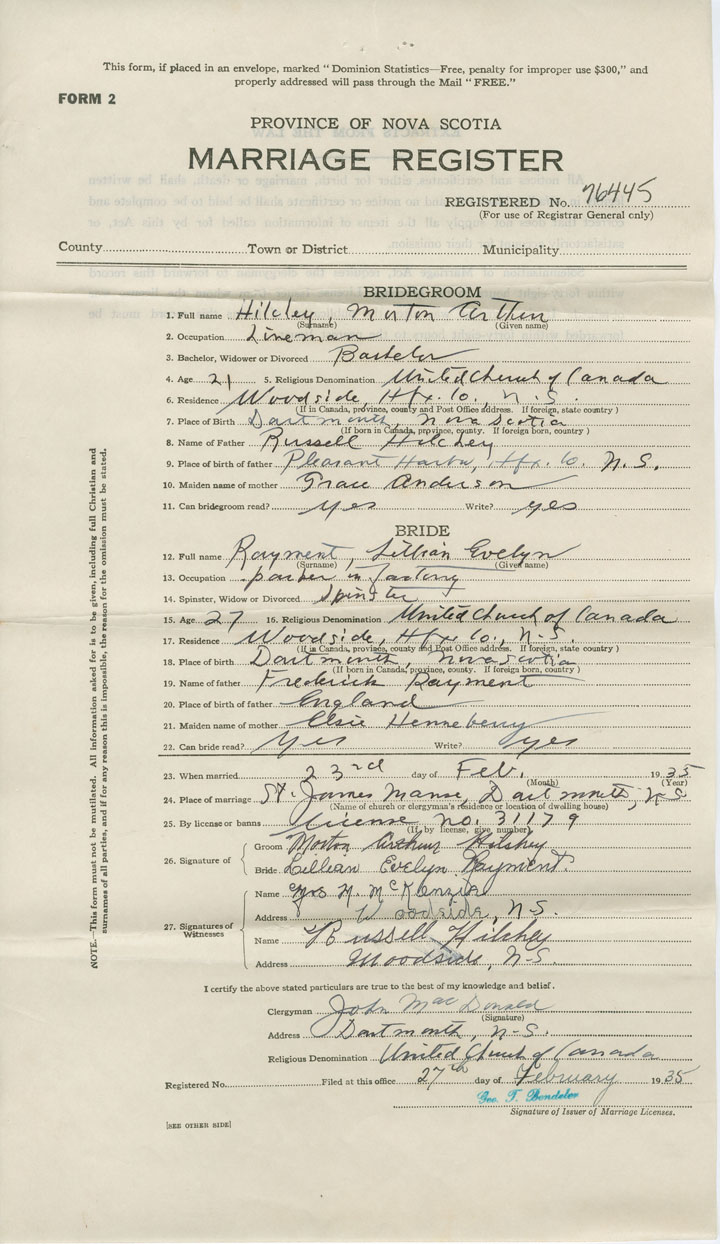 This form, if placed in an envelope, marked " Dominion Statistics—Free, penalty for improper use $300," and
properly addressed will pass through the Mail " FREE."
FORM 2
PROVINCE OF NOVA SCOTIA
MARRIAGE REGISTER
REGISTERED No. 76445
(For use of Registrar General only)
County Town or District Municipality
BRIDEGROOM
1. Full name Hilchey, Morton Arthur
(Surname) (Given name)
2. Occupation Lineman
3. Bachelor, Widower or Divorced Bachelor
4. Age 21 5. Religious Denomination United Church of Canada
6. Residence Woodside, Hfx. Co. N. S.
(If in Canada, province, county and Post Office address. If foreign, state country )
7. Place of Birth Dartmouth, Nova Scotia
(If born in Canada, province, county. If foreign born, country )
8. Name of Father Russell Hilchey
9. Place of birth of father Pleasant Harbor, Hfx. Co. N. S.
10. Maiden name of mother Grace Anderson
11. Can bridegroom read? Yes Write? yes
BRIDE
12. Full name Rayment, Lillian Evelyn
(Surname) (Given name)
13. Occupation packer in factory
14. Spinster, Widow or Divorced Spinster
15. Age 27 16. Religious Denomination United Church of Canada
17. Residence Woodside, Hfx Co., N. S.
(If in Canada, province, county and Post Office address. If foreign, state country )
18. Place of birth Dartmouth, Nova Scotia
(If born in Canada, province, county. If foreign born, country )
19. Name of father Frederick Rayment
20. Place of birth of father England
21. Maiden name of mother Elsie Henneberry
22. Can bride read? Yes Write? yes
23. When married 23rd day of Feb. 1935
(Month) (Year)
24. Place of marriage St. James Manse, Dartmouth, N S
(Name of church or clergyman's residence or location of dwelling house)
25. By license or banns License no. 31179
(If by license, give number)
26. Signature of Groom Morton Arthur Hilchey
Bride Lillian Evelyn Rayment.
27. Signatures of Witnesses
Name Mrs H. McKenzie
Address Woodside, N S.
Name Russell Hilchey
Address Woodside, N-S.
I certify the above stated particulars are true to the best of my knowledge and belief.
Clergyman John MacDonald
(Signature)
Address Dartmouth, N-S.
Religious Denomination United Church of Canada
Registered No. Filed at this office 27th day of February 1935
Geo. T. Bendeler
Signature of Issuer of Marriage Licenses.
[SEE OTHER SIDE]
NOTE.—This form must not be mutilated. All information asked for is to be given, including full Christian and
surnames of all parties, and if for any reason this is impossible, the reason for the omission must be stated.